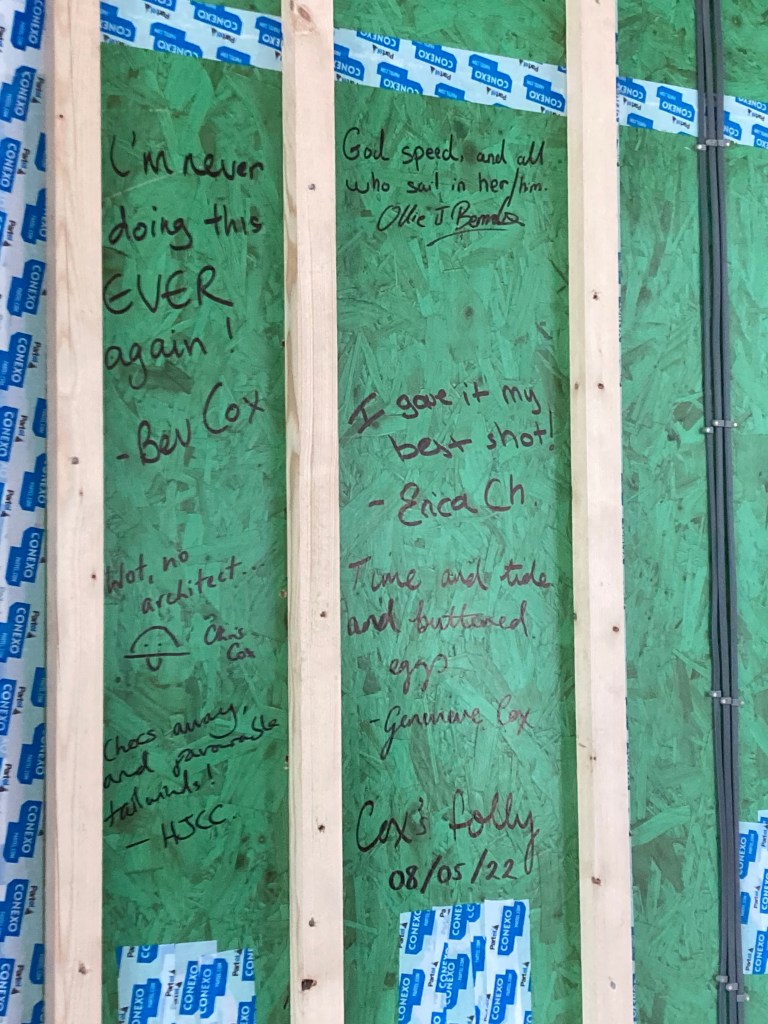 I'm never
doing this
EVER
again!
- Bev Cox
Wot, no
architect...
Chris
Cox
Chocs away,
and favourable
tailwinds!
- HJCC.
God speed, and all
who sail in her/him.
Ollie J.
I gave it my
best shot!
- Erica Ch
Time and tide
and buttered
eggs
- Genevieve Cox
Cox's folly
08/05/22
CONEXO
Partel
PARTEL.COM